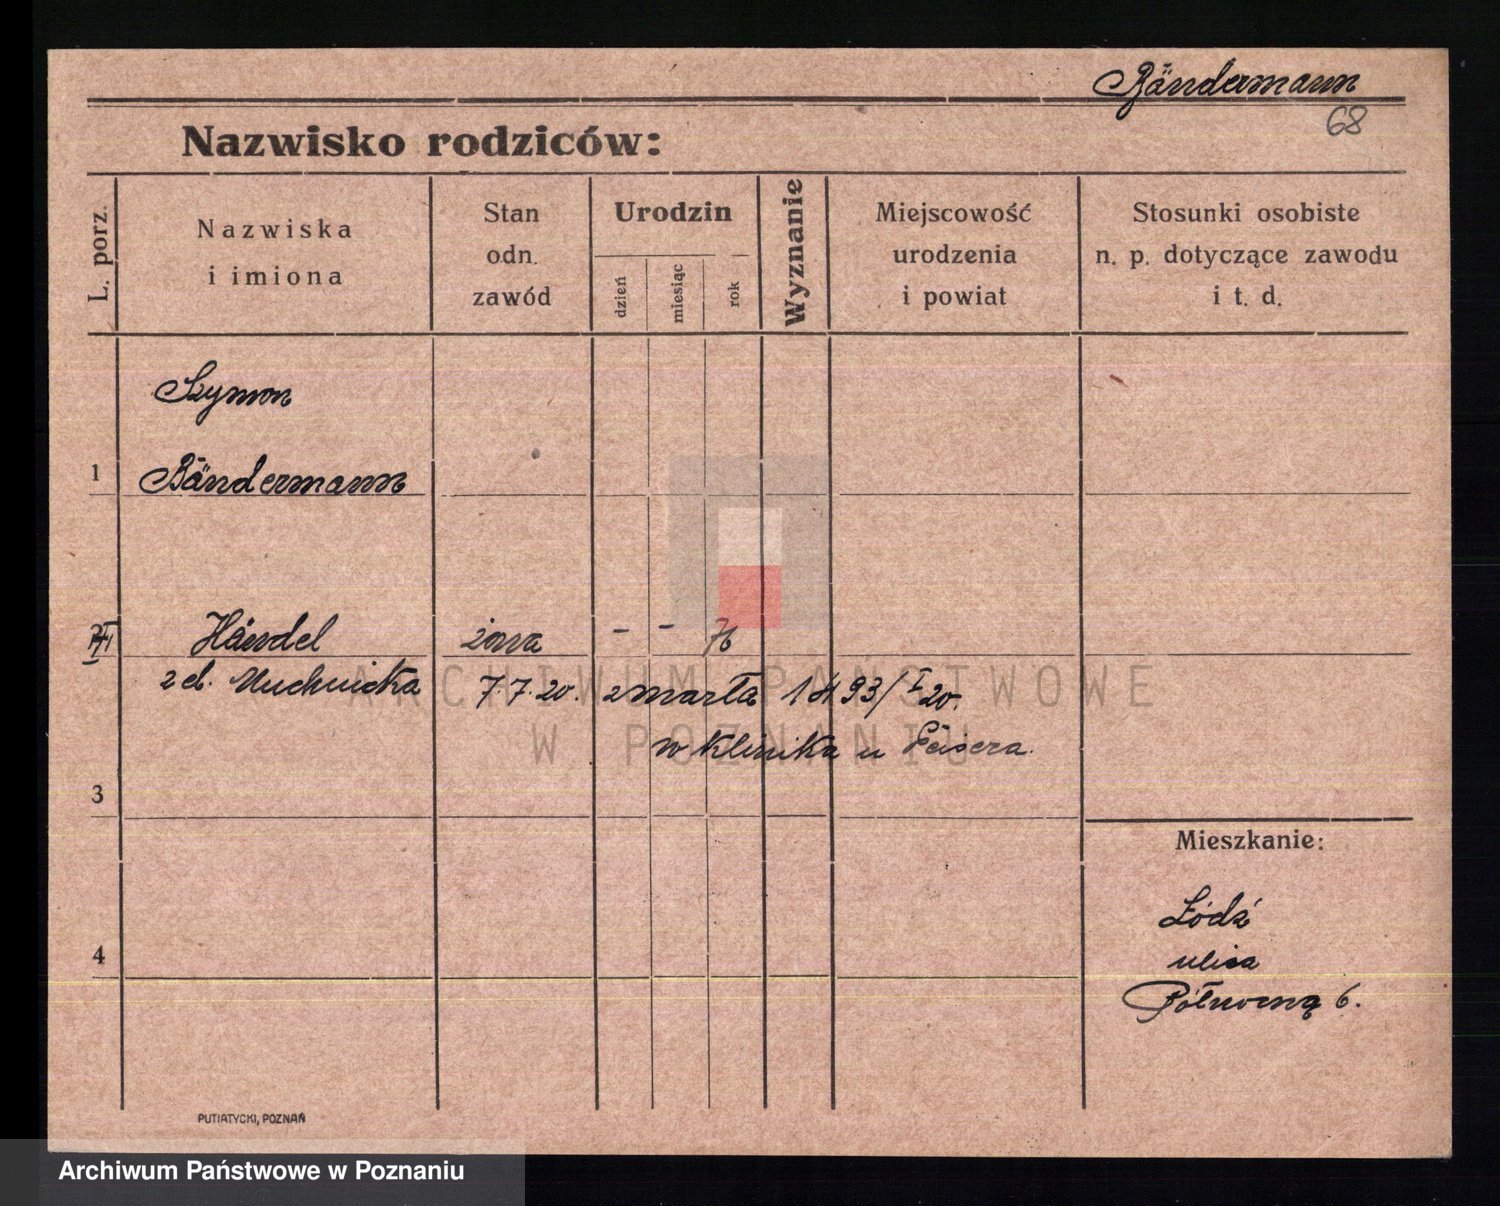 Bändermann
68
Nazwisko rodziców:
L. porz.
Nazwiska
i imiona
Stan
odn.
zawód
Urodzin
dzień
miesiąc
rok
Wyznanie
Miejscowość
urodzenia
i powiat
Stosunki osobiste
n. p. dotyczące zawodu
i t. d.
Szymon
1
Bändermann
2
Händel żona – – 76
7.7.20. zmarła 1493/I 20.
w klinika u
3
Mieszkanie:
Łódź
ulica
Północną 6.
4
PUTIATYCKI, POZNAŃ
ARCHIWUM PAŃSTWOWE
W POZNANIU
Archiwum Państwowe w Poznaniu